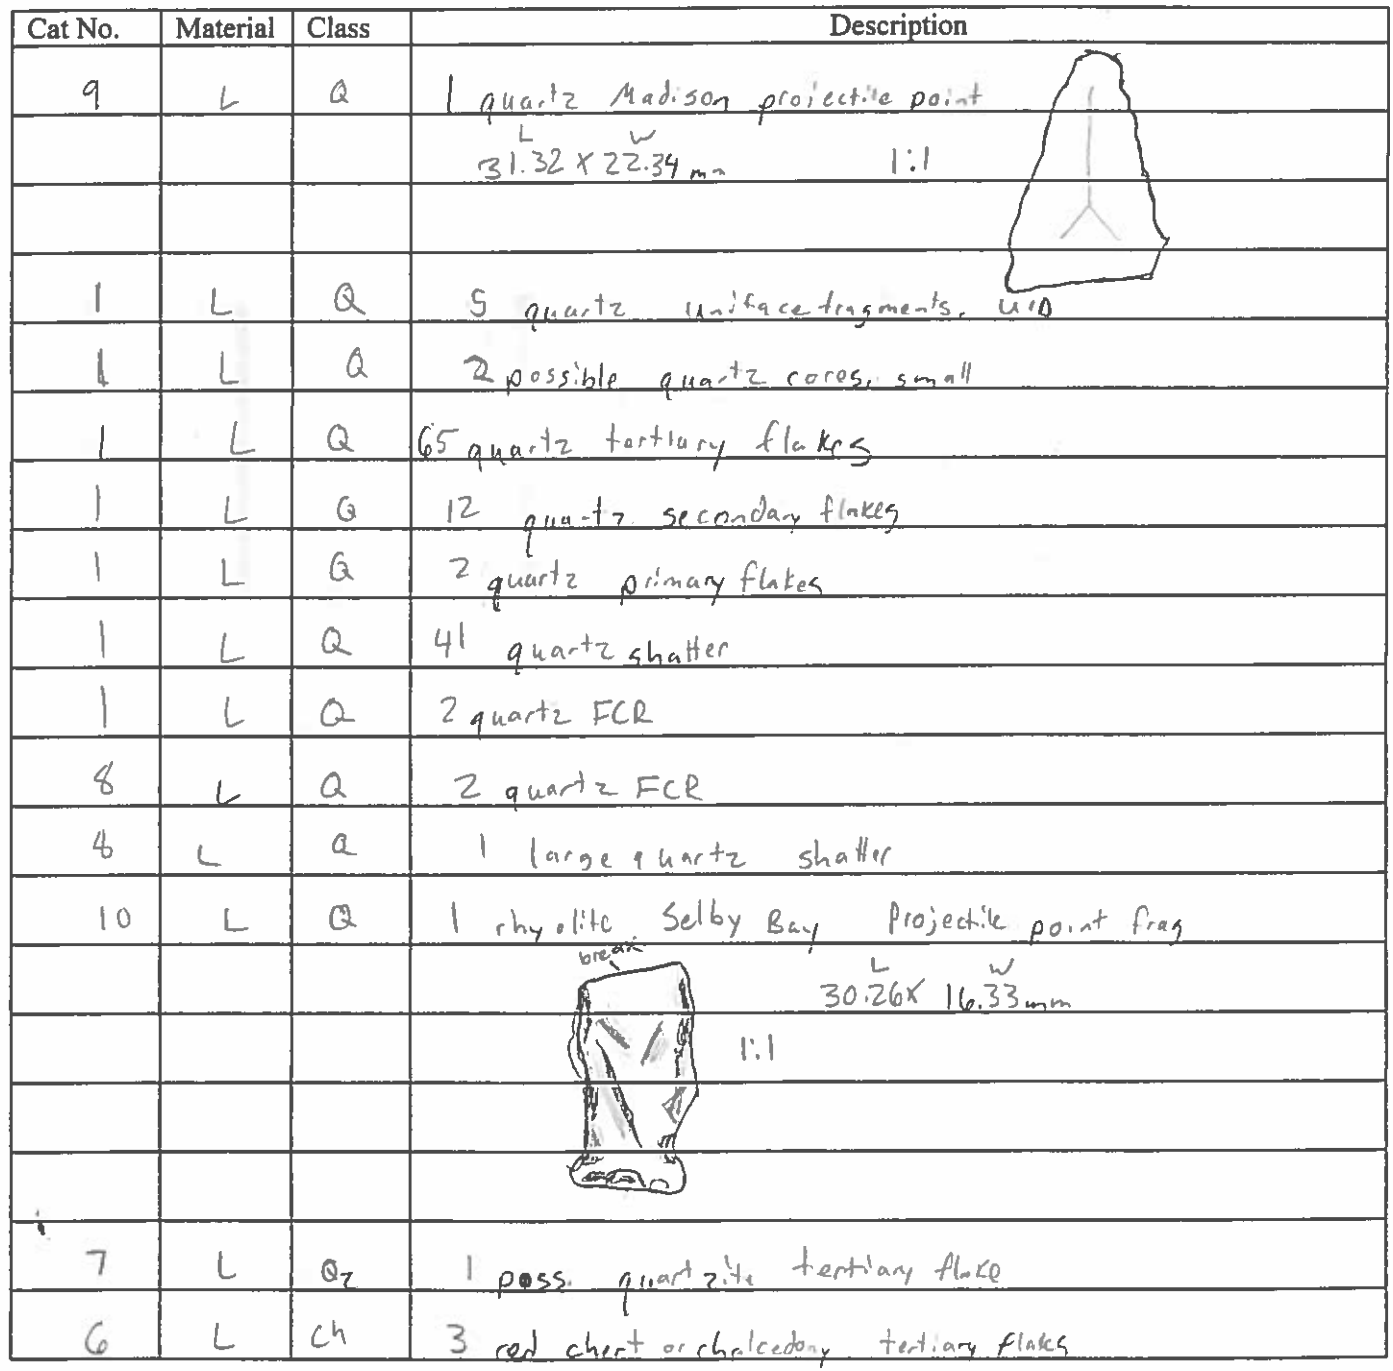 Cat No. Material Class Description
9 L Q 1 quartz Madison projectile point
L W
31.32 X 22.34 mm 1:1
1 L Q 5 quartz uniface fragments, UID
1 L Q 2 possible quartz cores, small
1 L Q 65 quartz tertiary flakes
1 L Q 12 quartz secondary flakes
1 L Q 2 quartz primary flakes
1 L Q 41 quartz shatter
1 L Q 2 quartz FCR
8 L Q 2 quartz FCR
8 L Q 1 large quartz shatter
10 L Q 1 rhyolite Selby Bay Projectile point frag
break
L W
30.26X 16.33mm
1:1
7 L Qz 1 poss. quartzite tertiary flake
6 L Ch 3 red chert or chalcedony tertiary flakes